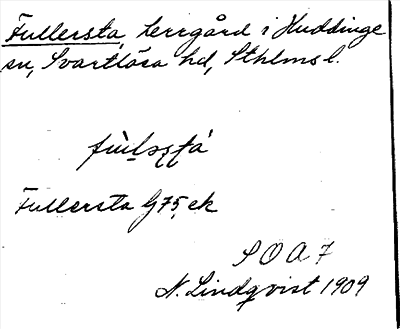 Fullersta, herrgård i Huddinge
sn, Svartlösa hd, Sthlms l.
Fullersta G75, ek
S O A 7
N. Lindqvist 1909